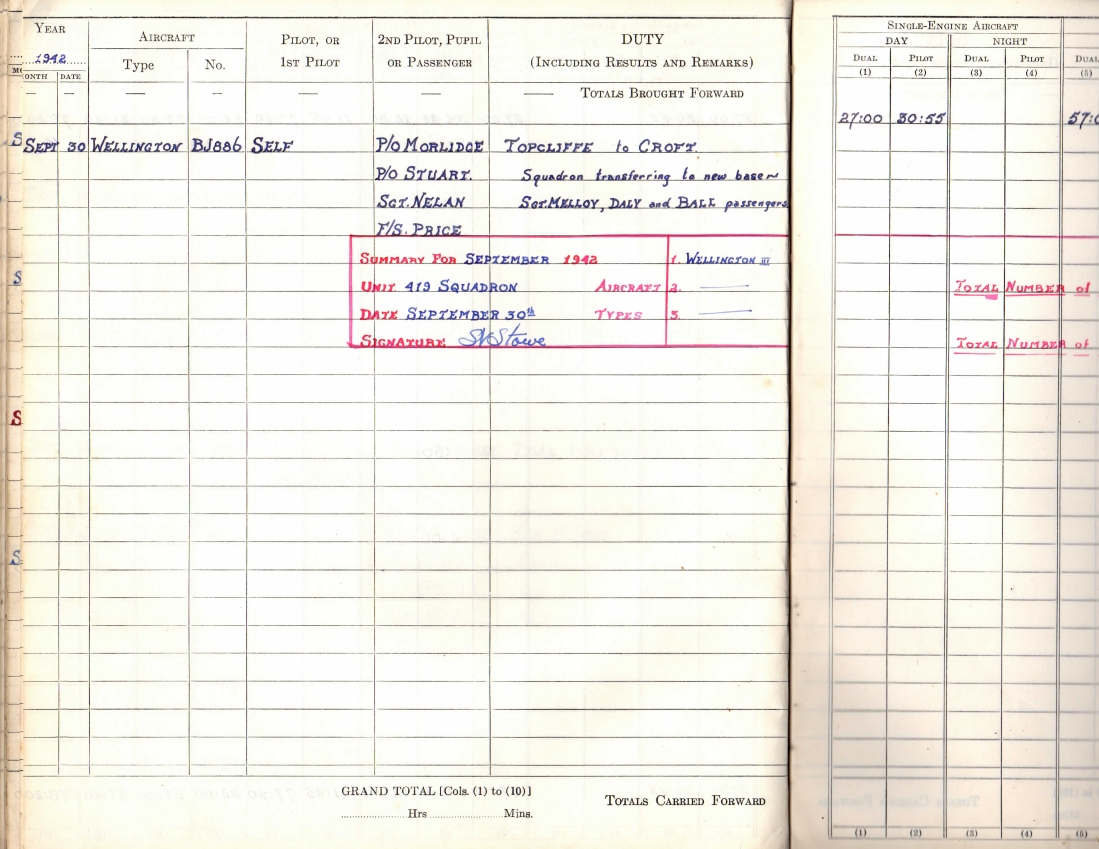 YEAR
AIRCRAFT
PILOT, OR
1ST PILOT
2ND PILOT, PUPIL
OR PASSENGER
DUTY
(INCLUDING RESULTS AND REMARKS)
1942
Type
No.
MONTH
DATE
— — — — — — —— TOTALS BROUGHT FORWARD
SEPT 30 WELLINGTON BJ886 SELF P/O MORLIDGE TOPCLIFFE to CROFT.
P/O STUART. Squadron transferring to new base~
SGT. NELAN SGT. MELLOY, DALY and BALL passengers
F/S. PRICE
SUMMARY FOR SEPTEMBER 1942 1. WELLINGTON III
UNIT 419 SQUADRON AIRCRAFT 2. ——
DATE SEPTEMBER 30th TYPES 3. ——
SIGNATURE Stowe
GRAND TOTAL [Cols. (1) to (10)]
Hrs Mins.
TOTALS CARRIED FORWARD
SINGLE-ENGINE AIRCRAFT
DAY NIGHT
DUAL PILOT DUAL PILOT DUAL
(1) (2) (3) (4) (5)
27:00 30:55 57:0
TOTAL NUMBER of
TOTAL NUMBER of
(1) (2) (3) (4) (5)